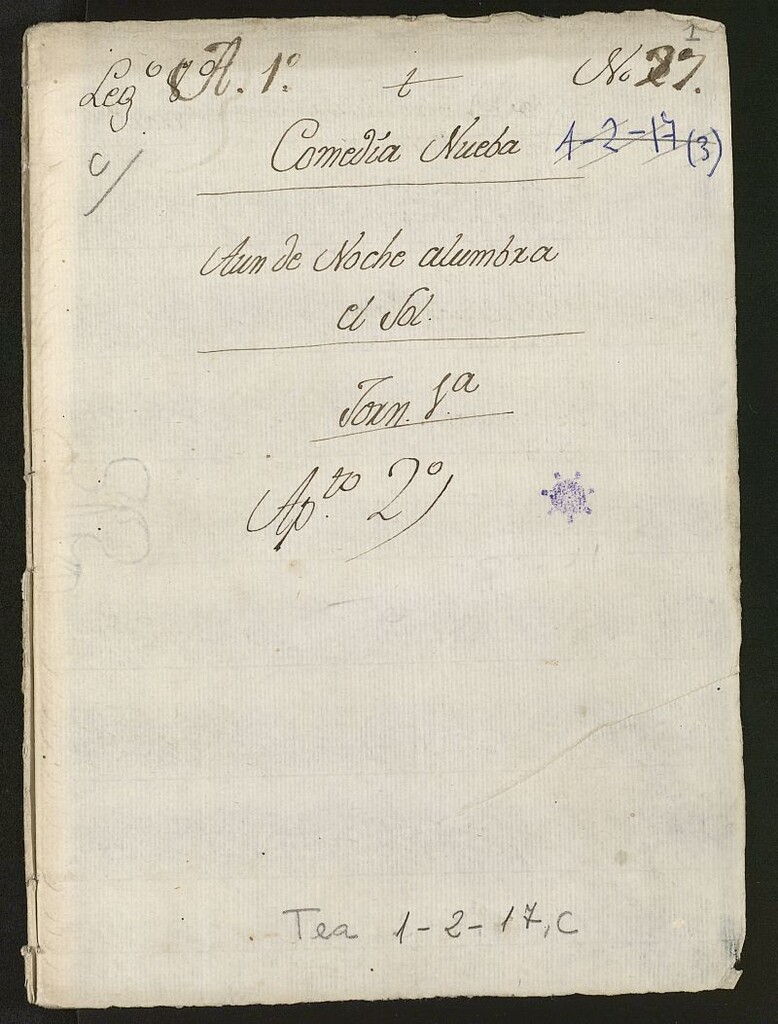 1
Leg.º 8º A. 1º. t No 27.
c/
Comedia Nueba 1-2-17 (3)
Aun de Noche alumbra
el Sol.
Jorn. 1.ª
Ap.to 2º
Tea 1-2-17, C